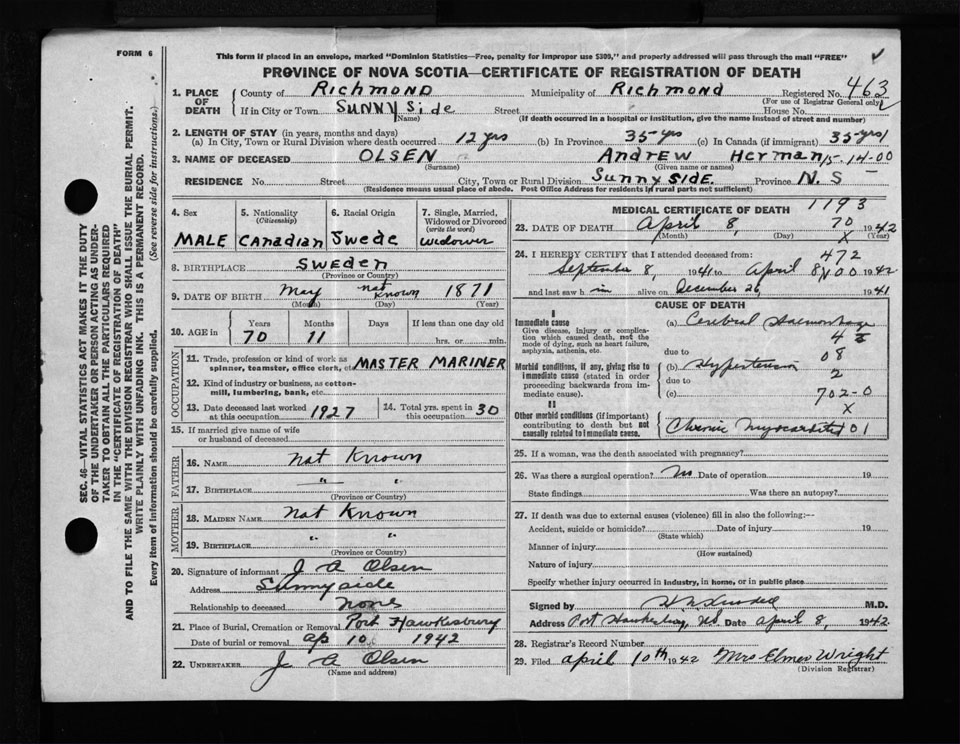 FORM 6
This form if placed in an envelope, marked "Dominion Statistics—Free, penalty for improper use $300," and properly addressed will pass through the mail "FREE"
PROVINCE OF NOVA SCOTIA—CERTIFICATE OF REGISTRATION OF DEATH
1. PLACE OF DEATH County of Richmond Municipality of Richmond Registered No. 463
(For use of Registrar General only)
If in City or Town Sunny Side Street House No.
(Name) (If death occurred in a hospital or institution, give the name instead of street and number)
2. LENGTH OF STAY (in years, months and days)
(a) In City, Town or Rural Division where death occurred 12 yrs (b) In Province 35 yrs (c) In Canada (if immigrant) 35 yrs
3. NAME OF DECEASED OLSEN Andrew Herman 15-14-00
(Surname) (Given name or names)
RESIDENCE No. Street City, Town or Rural Division Sunny Side. Province N. S
(Residence means usual place of abode. Post Office Address for residents in rural parts not sufficient)
4. Sex MALE
5. Nationality (Citizenship) Canadian
6. Racial Origin Swede
7. Single, Married, Widowed or Divorced (write the word) widower
8. BIRTHPLACE Sweden
(Province or Country)
9. DATE OF BIRTH May not Known 1871
(Month) (Day) (Year)
10. AGE in Years Months Days If less than one day old
70 11 hrs. or min.
OCCUPATION
11. Trade, profession or kind of work as spinner, teamster, office clerk, etc. MASTER MARINER
12. Kind of industry or business, as cotton-mill, lumbering, bank, etc.
13. Date deceased last worked at this occupation 1927 14. Total yrs. spent in this occupation 30
15. If married give name of wife or husband of deceased
FATHER
16. NAME not Known
17. BIRTHPLACE — " —
(Province or Country)
MOTHER
18. MAIDEN NAME not Known
19. BIRTHPLACE " "
(Province or Country)
20. Signature of informant J A Olsen
Address Sunnyside
Relationship to deceased none
21. Place of Burial, Cremation or Removal Port Hawkesbury
Date of burial or removal ap 10 1942
22. UNDERTAKER J A Olsen
(Name and address)
MEDICAL CERTIFICATE OF DEATH 1193
23. DATE OF DEATH April 8, 70 1942
(Month) (Day) X (Year)
24. I HEREBY CERTIFY that I attended deceased from: 472
September 8, 1941 to April 8, 1942
and last saw him alive on December 26, 1941
CAUSE OF DEATH
I
Immediate cause
Give disease, injury or complication which caused death, not the mode of dying, such as heart failure, asphyxia, asthenia, etc.
(a) Cerebral Haemorrhage
due to
Morbid conditions, if any, giving rise to immediate cause (stated in order proceeding backwards from immediate cause).
08
(b) Hypertension
2
due to
(c) 702-0
X
II
Other morbid conditions (if important) contributing to death but not causally related to immediate cause.
Chronic myocarditis 101
25. If a woman, was the death associated with pregnancy?
26. Was there a surgical operation? No Date of operation 19
State findings Was there an autopsy?
27. If death was due to external causes (violence) fill in also the following:—
Accident, suicide or homicide? Date of injury 19
(State which)
Manner of injury
(How sustained)
Nature of injury
Specify whether injury occurred in industry, in home, or in public place
Signed by M.D.
Address Port Hawkesbury, NS Date April 8, 1942
28. Registrar's Record Number
29. Filed April 10th 1942 Mrs Elmer Wright
(Division Registrar)
SEC. 46—VITAL STATISTICS ACT MAKES IT THE DUTY
OF THE UNDERTAKER OR PERSON ACTING AS UNDER-
TAKER TO OBTAIN ALL THE PARTICULARS REQUIRED
IN THE "CERTIFICATE OF REGISTRATION OF DEATH"
AND TO FILE THE SAME WITH THE DIVISION REGISTRAR WHO SHALL ISSUE THE BURIAL PERMIT.
WRITE PLAINLY WITH UNFADING INK. THIS IS A PERMANENT RECORD.
Every item of information should be carefully supplied. (See reverse side for instructions.)